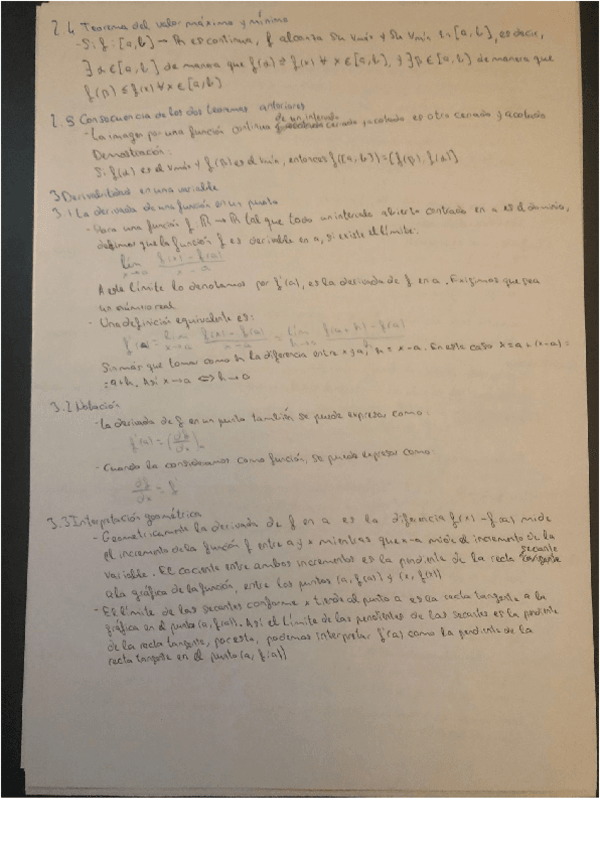 2.4 Teorema del valor máximo y mínimo
- Si f: [a,b] → R es continua, f alcanza su vmáx y su vmin en [a,b], es decir,
∃ α ∈ [a,b] de manera que f(α) ≥ f(x) ∀ x ∈ [a,b], y ∃ β ∈ [a,b] de manera que
f(β) ≤ f(x) ∀ x ∈ [a,b]
2.5 Consecuencia de los dos teoremas anteriores
- La imagen por una función continua de un intervalo cerrado y acotado es otro cerrado y acotado
Demostración:
Si f(α) es el vmáx y f(β) es el vmin, entonces f([a,b]) = [f(β), f(α)]
3 Derivabilidad en una variable
3.1 La derivada de una función en un punto
- Para una función f: R → R tal que todo un intervalo abierto centrado en a es el dominio,
decimos que la función f es derivable en a, si existe el límite:
lim x→a f(x) - f(a) / x - a
A este límite lo denotamos por f'(a), es la derivada de f en a. Exigimos que sea
un número real
- Una definición equivalente es:
f'(a) = lim x→a f(x) - f(a) / x - a = lim h→0 f(a+h) - f(a) / h
Sin más que tomar como h la diferencia entre x y a, h = x - a. En este caso x = a + (x-a) =
= a+h. Así x→a ⇔ h→0
3.2 Notación
- La derivada de f en un punto también se puede expresar como:
f'(a) = (df/dx)a
- Cuando la consideramos como función, se puede expresar como:
df/dx = f'
3.3 Interpretación geométrica
- Geométricamente la derivada de f en a es la diferencia f(x) - f(a) mide
el incremento de la función f entre a y x mientras que x-a mide el incremento de la
variable. El cociente entre ambos incrementos es la pendiente de la recta secante
a la gráfica de la función, entre los puntos (a, f(a)) y (x, f(x))
- El límite de las secantes conforme x tiende al punto a es la recta tangente a la
gráfica en el punto (a, f(a)). Así el límite de las pendientes de las secantes es la pendiente
de la recta tangente, por esto, podemos interpretar f'(a) como la pendiente de la
recta tangente en el punto (a, f(a))